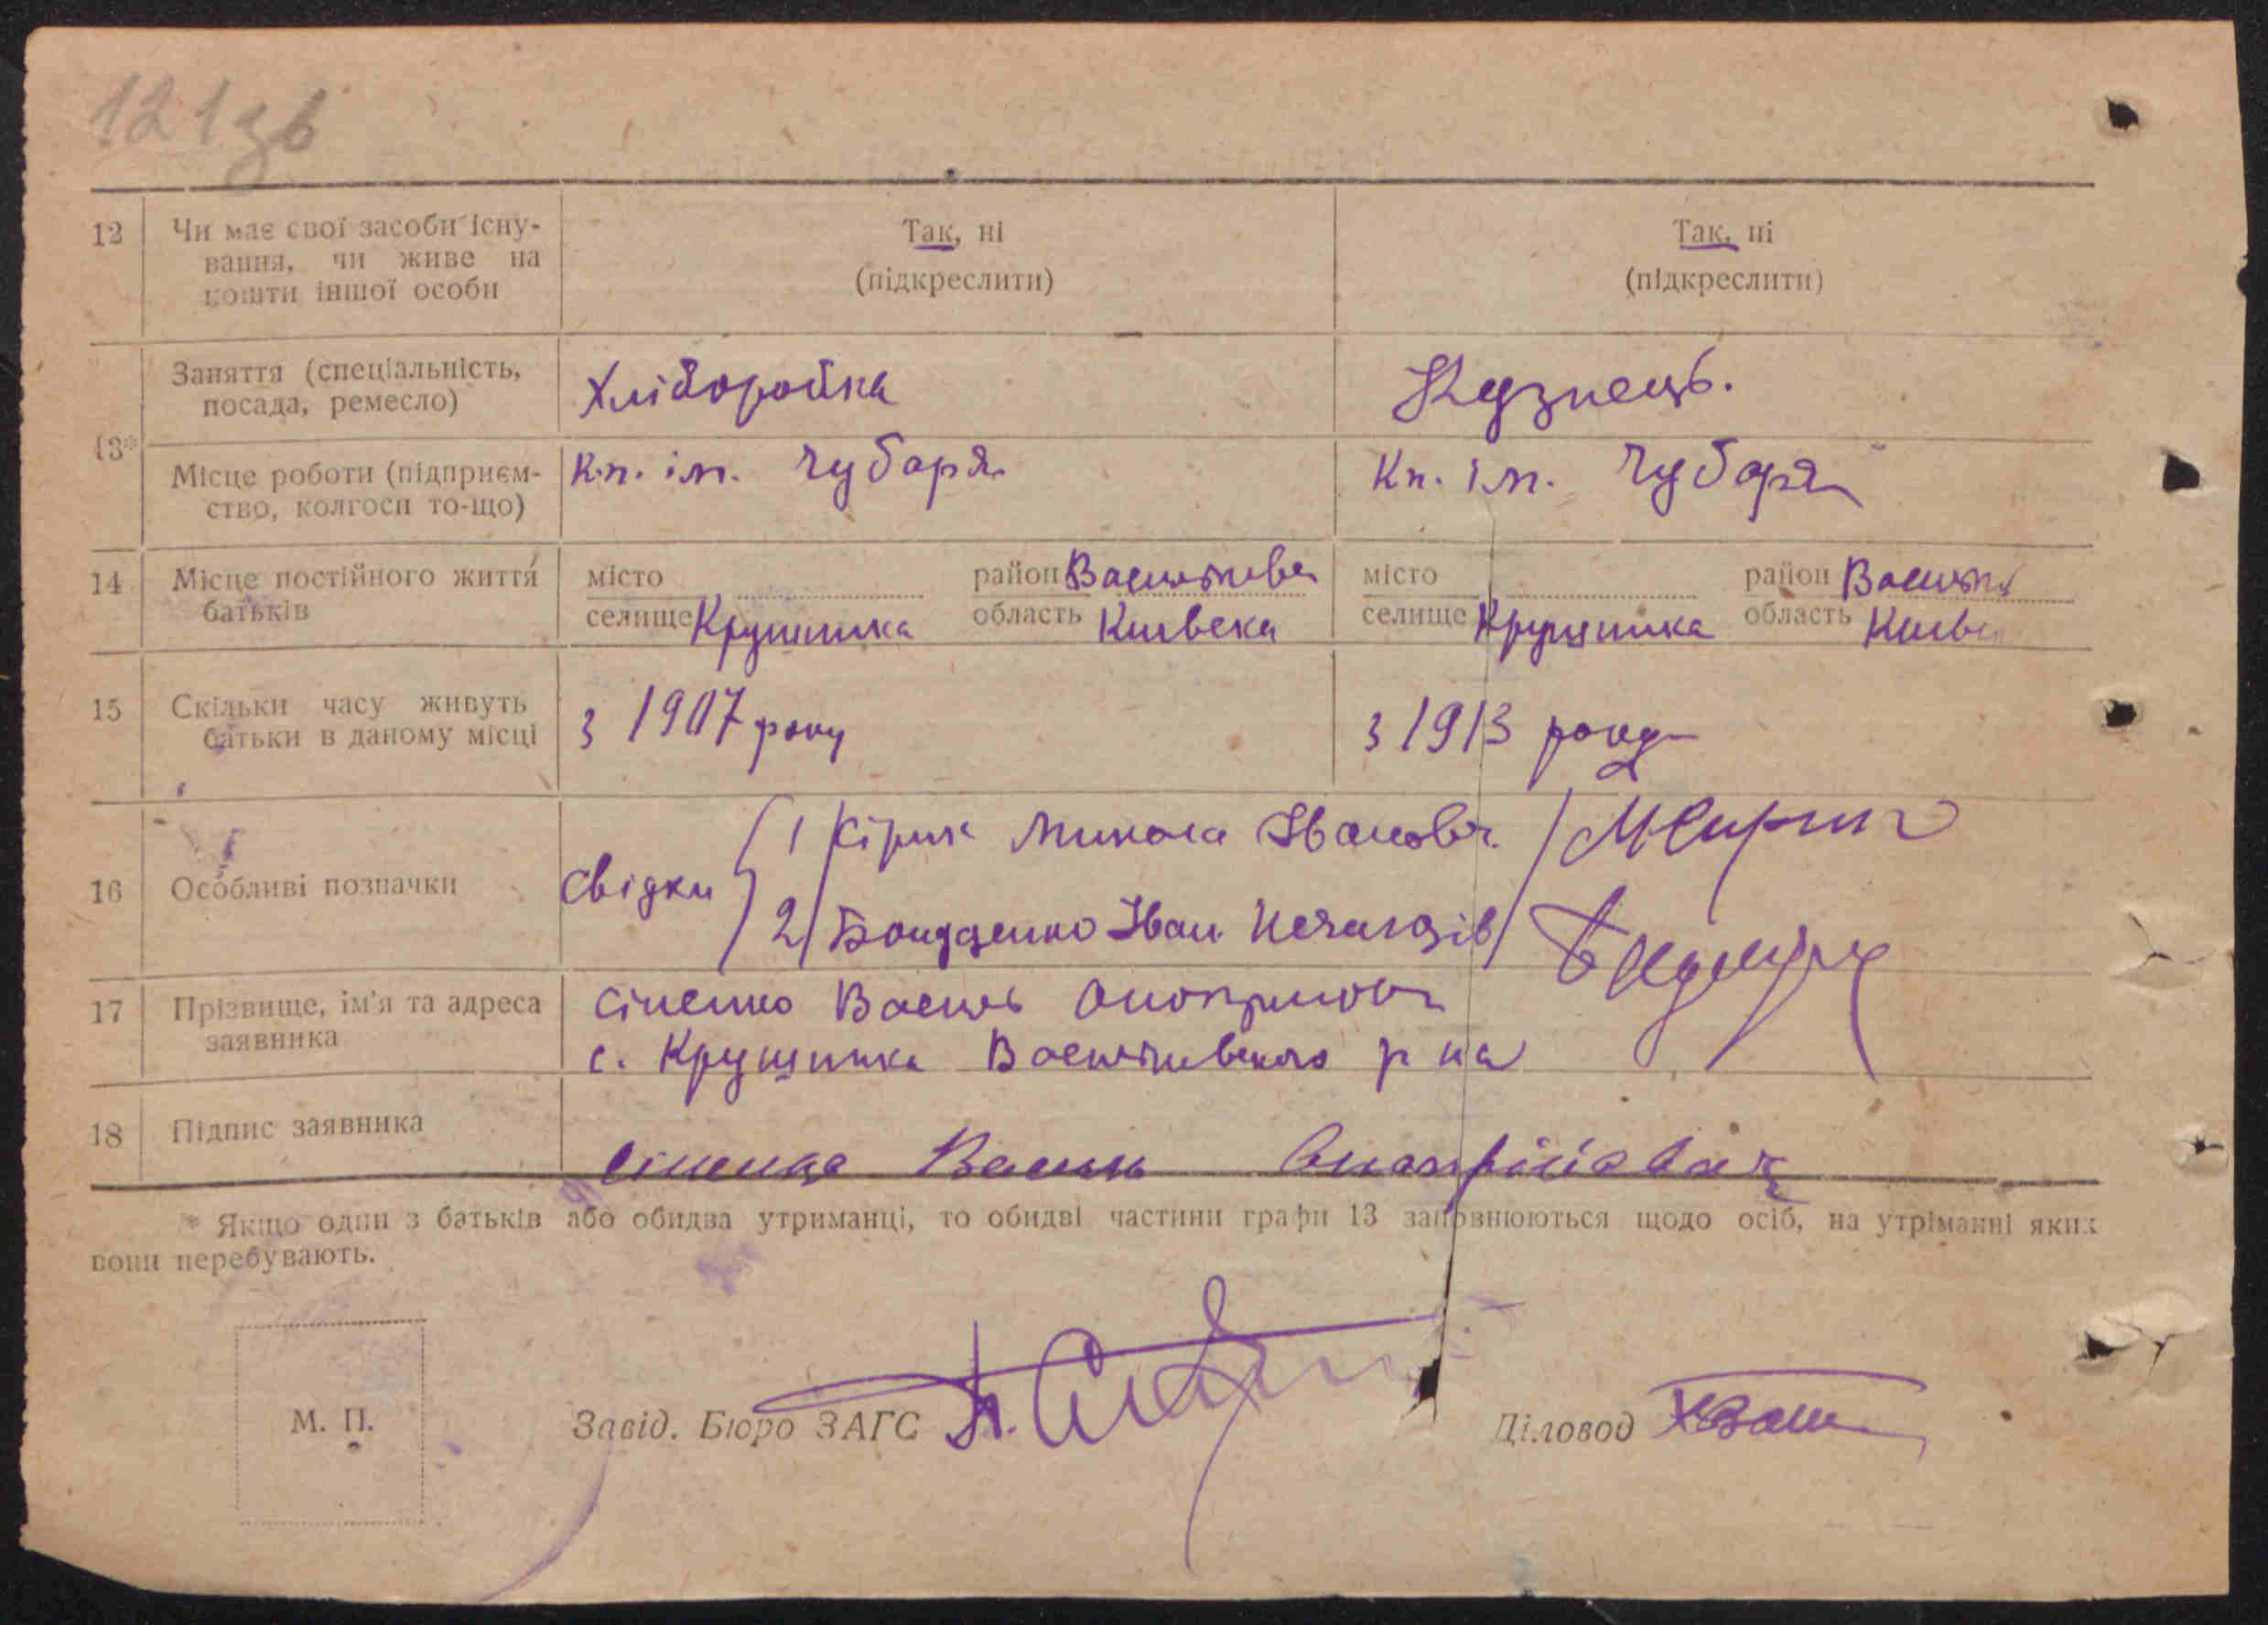 121зв
12 Чи має свої засоби існу- Так, ні Так, ні
вання, чи живе на (підкреслити) (підкреслити)
кошти іншої особи
13* Заняття (спеціальність, Хліборобка Кузнець.
посада, ремесло)
Місце роботи (підприєм- Кп. ім. Чубаря Кп. ім. Чубаря
ство, колгосп то-що)
14 Місце постійного життя місто район Васильківс місто район Васильк
батьків селище Крушинка область Київска селище Крушинка область Київс
15 Скільки часу живуть з 1907 року з 1913 року
батьки в даному місці
16 Особливі позначки Свідки 1/ Кірик Микола Іванович
2/ Бондаренко Іван
17 Прізвище, ім'я та адреса Сіненко Василь
заявника с. Крушинка Васильківського р на
18 Підпис заявника Сіненко Василь
* Якщо один з батьків або обидва утриманці, то обидві частини графи 13 заповнюються щодо осіб, на утріманні яких
вони перебувають.
М. П. Завід. Бюро ЗАГС Діловод